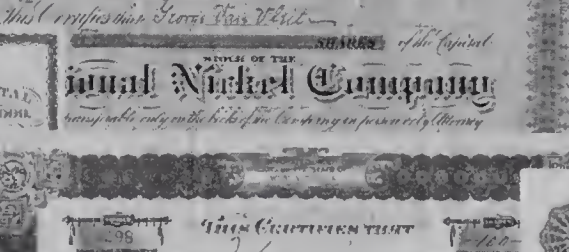 This Certifies that George Van Vliet
SHARES of the Capital
STOCK OF THE
ional Nickel Company
transferable only on the books of the Company in person or by Attorney
THIS CERTIFIES THAT
298